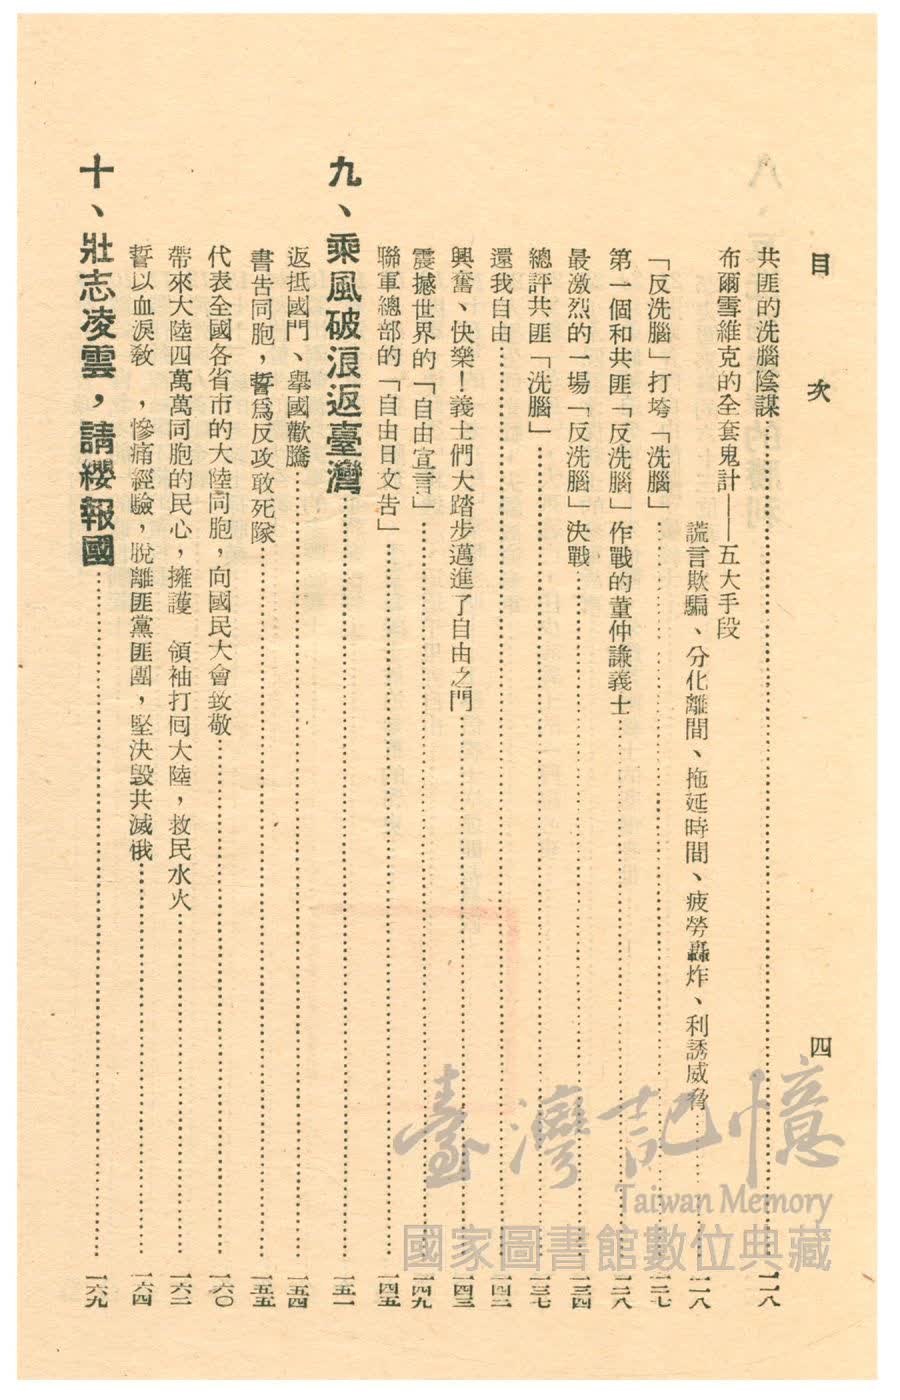 目次
四
共匪的洗腦陰謀…………一一八
布爾雪維克的全套鬼計——五大手段
謊言欺騙、分化離間、拖延時間、疲勞轟炸、利誘威脅…………一一八
「反洗腦」打垮「洗腦」…………一二七
第一個和共匪「反洗腦」作戰的董仲謙義士…………一二八
最激烈的一場「反洗腦」決戰…………一三四
總評共匪「洗腦」…………一三七
還我自由…………一四二
興奮、快樂！義士們大踏步邁進了自由之門…………一四三
震撼世界的「自由宣言」…………一四九
聯軍總部的「自由日文告」…………一四五
九、乘風破浪返臺灣…………一五一
返抵國門、舉國歡騰…………一五四
書告同胞，誓爲反攻敢死隊…………一五五
代表全國各省市的大陸同胞，向國民大會致敬…………一六〇
帶來大陸四萬萬同胞的民心，擁護　領袖打回大陸，救民水火…………一六二
誓以血淚教　，慘痛經驗，脫離匪黨匪團，堅決毀共滅俄…………一六四
十、壯志凌雲，請纓報國…………一六九
臺灣記憶
Taiwan Memory
國家圖書館數位典藏